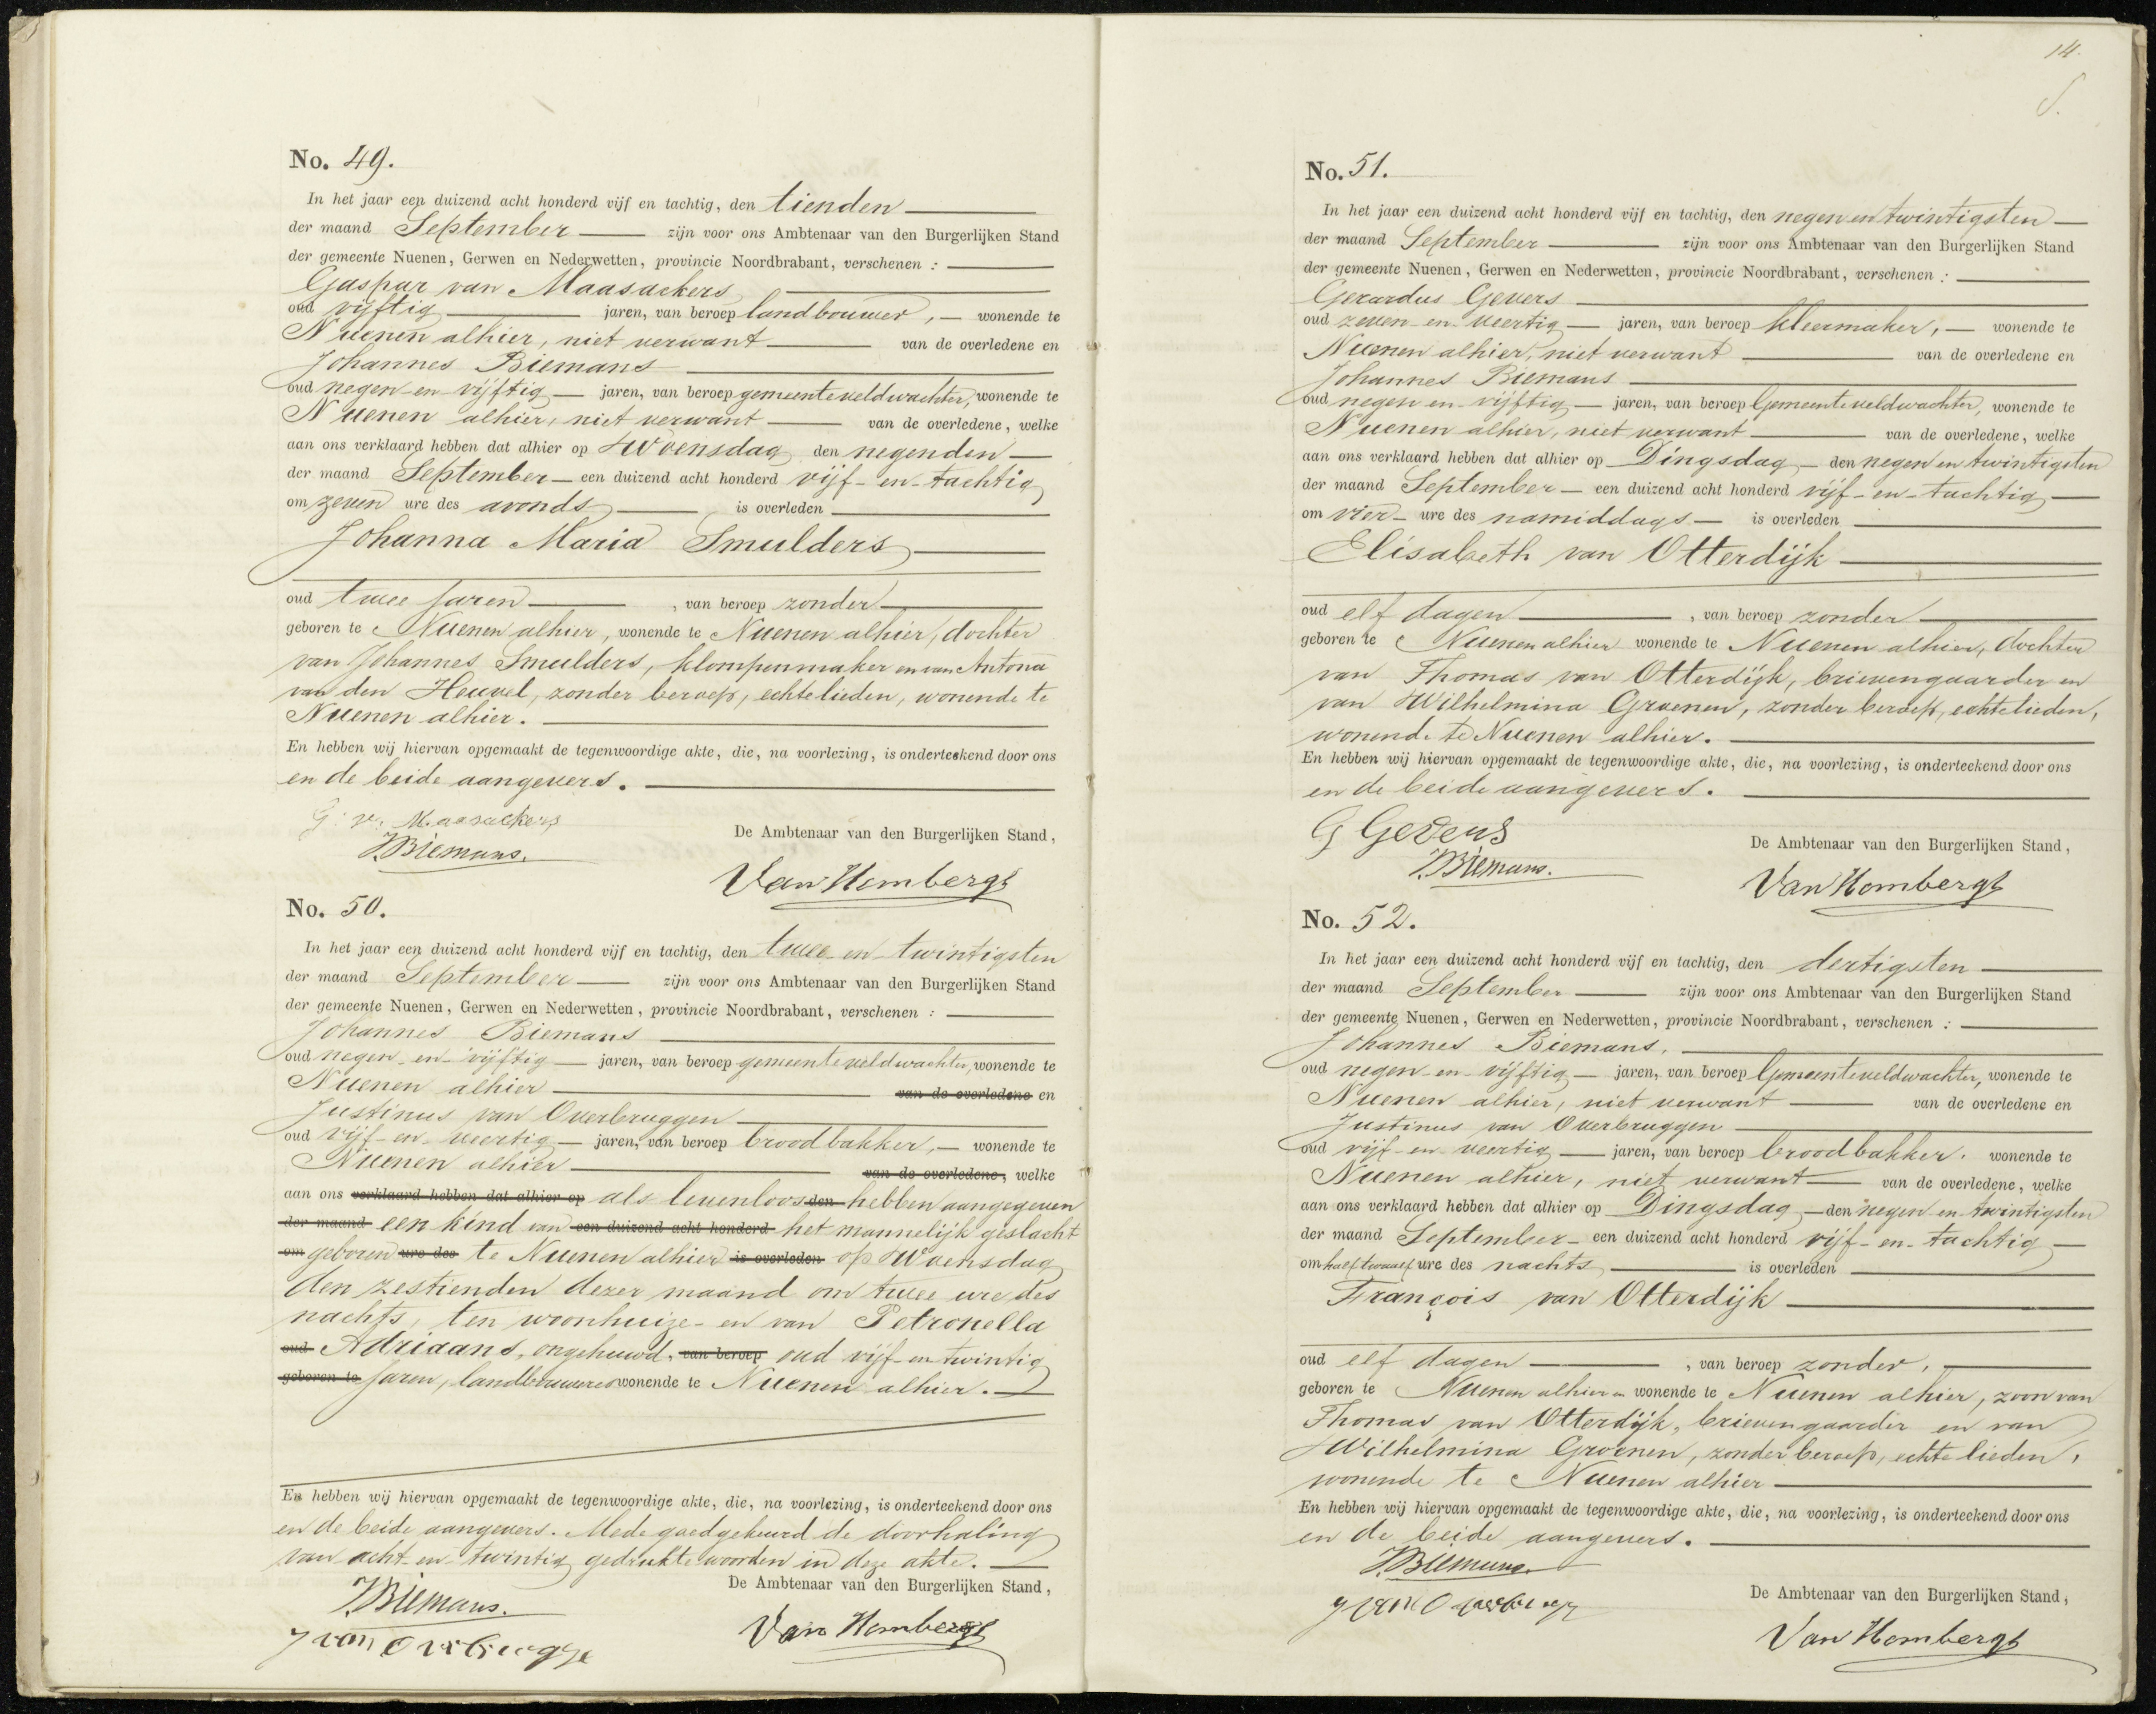 No. 49.
In het jaar een duizend acht honderd vijf en tachtig, den tienden
der maand September zijn voor ons Ambtenaar van den Burgerlijken Stand
der gemeente Nuenen, Gerwen en Nederwetten, provincie Noordbrabant, verschenen :
Gaspar van Maasackers
oud vijftig jaren, van beroep landbouwer, wonende te
Nuenen alhier, niet verwant van de overledene en
Johannes Biemans
oud negen-en-vijftig jaren, van beroep gemeenteveldwachter, wonende te
Nuenen alhier, niet verwant van de overledene, welke
aan ons verklaard hebben dat alhier op Woensdag den negenden
der maand September een duizend acht honderd vijf-en-tachtig
om zeven ure des avonds is overleden
Johanna Maria Smulders
oud twee jaren , van beroep zonder
geboren te Nuenen alhier, wonende te Nuenen alhier, dochter
van Johannes Smulders, klompenmaker en van Antona
van den Heuvel, zonder beroep, echtelieden, wonende te
Nuenen alhier.
En hebben wij hiervan opgemaakt de tegenwoordige akte, die, na voorlezing, is onderteekend door ons
en de beide aangevers.
G. v. Maasackers
J. Biemans.
De Ambtenaar van den Burgerlijken Stand,
Van Hombergh
No. 50.
In het jaar een duizend acht honderd vijf en tachtig, den twee-en-twintigsten
der maand September zijn voor ons Ambtenaar van den Burgerlijken Stand
der gemeente Nuenen, Gerwen en Nederwetten, provincie Noordbrabant, verschenen :
Johannes Biemans
oud negen-en-vijftig jaren, van beroep gemeenteveldwachter, wonende te
Nuenen alhier van de overledene en
Justinus van Overbruggen
oud vijf-en-veertig jaren, van beroep broodbakker, wonende te
Nuenen alhier van de overledene, welke
aan ons verklaard hebben dat alhier op als levenloos den hebben aangegeven
der maand een kind van een duizend acht honderd het mannelijk geslacht
om geboren ure des te Nuenen alhier is overleden op Woensdag
den zestienden dezer maand om twee ure des
nachts, ten woonhuize- en van Petronella
oud Adriaans, ongehuwd, van beroep oud vijf-en-twintig
geboren te jaren, landbouwere wonende te Nuenen alhier.
En hebben wij hiervan opgemaakt de tegenwoordige akte, die, na voorlezing, is onderteekend door ons
en de beide aangevers. Mede goedgekeurd de doorhaling
van acht-en-twintig gedrukte woorden in deze akte.
J. Biemans.
De Ambtenaar van den Burgerlijken Stand,
Van Hombergh
14.
No. 51.
In het jaar een duizend acht honderd vijf en tachtig, den negen en twintigsten
der maand September zijn voor ons Ambtenaar van den Burgerlijken Stand
der gemeente Nuenen, Gerwen en Nederwetten, provincie Noordbrabant, verschenen :
Gerardus Gevers
oud zeven-en-veertig jaren, van beroep kleermaker, wonende te
Nuenen alhier, niet verwant van de overledene en
Johannes Biemans
oud negen en vijftig jaren, van beroep Gemeenteveldwachter, wonende te
Nuenen alhier, niet verwant van de overledene, welke
aan ons verklaard hebben dat alhier op Dingsdag den negen en twintigsten
der maand September een duizend acht honderd vijf-en-tachtig
om vier ure des namiddags is overleden
Elisabeth van Otterdijk
oud elf dagen , van beroep zonder
geboren te Nuenen alhier wonende te Nuenen alhier, dochter
van Thomas van Otterdijk, brievengaarder en
van Wilhelmina Groenen, zonder beroep, echtelieden,
wonende te Nuenen alhier.
En hebben wij hiervan opgemaakt de tegenwoordige akte, die, na voorlezing, is onderteekend door ons
en de beide aangevers.
G Gevers
J. Biemans.
De Ambtenaar van den Burgerlijken Stand,
Van Hombergh
No. 52.
In het jaar een duizend acht honderd vijf en tachtig, den dertigsten
der maand September zijn voor ons Ambtenaar van den Burgerlijken Stand
der gemeente Nuenen, Gerwen en Nederwetten, provincie Noordbrabant, verschenen :
Johannes Biemans,
oud negen-en-vijftig jaren, van beroep Gemeenteveldwachter, wonende te
Nuenen alhier, niet verwant van de overledene en
Justinus van Overbruggen
oud vijf-en-veertig jaren, van beroep broodbakker. wonende te
Nuenen alhier, niet verwant van de overledene, welke
aan ons verklaard hebben dat alhier op Dingsdag den negen en twintigsten
der maand September een duizend acht honderd vijf-en-tachtig
om half twaalf ure des nachts is overleden
François van Otterdijk
oud elf dagen , van beroep zonder,
geboren te Nuenen alhier en wonende te Nuenen alhier, zoon van
Thomas van Otterdijk, brievengaarder en van
Wilhelmina Groenen, zonder beroep, echtelieden,
wonende te Nuenen alhier
En hebben wij hiervan opgemaakt de tegenwoordige akte, die, na voorlezing, is onderteekend door ons
en de beide aangevers.
J. Biemans.
De Ambtenaar van den Burgerlijken Stand,
Van Hombergh